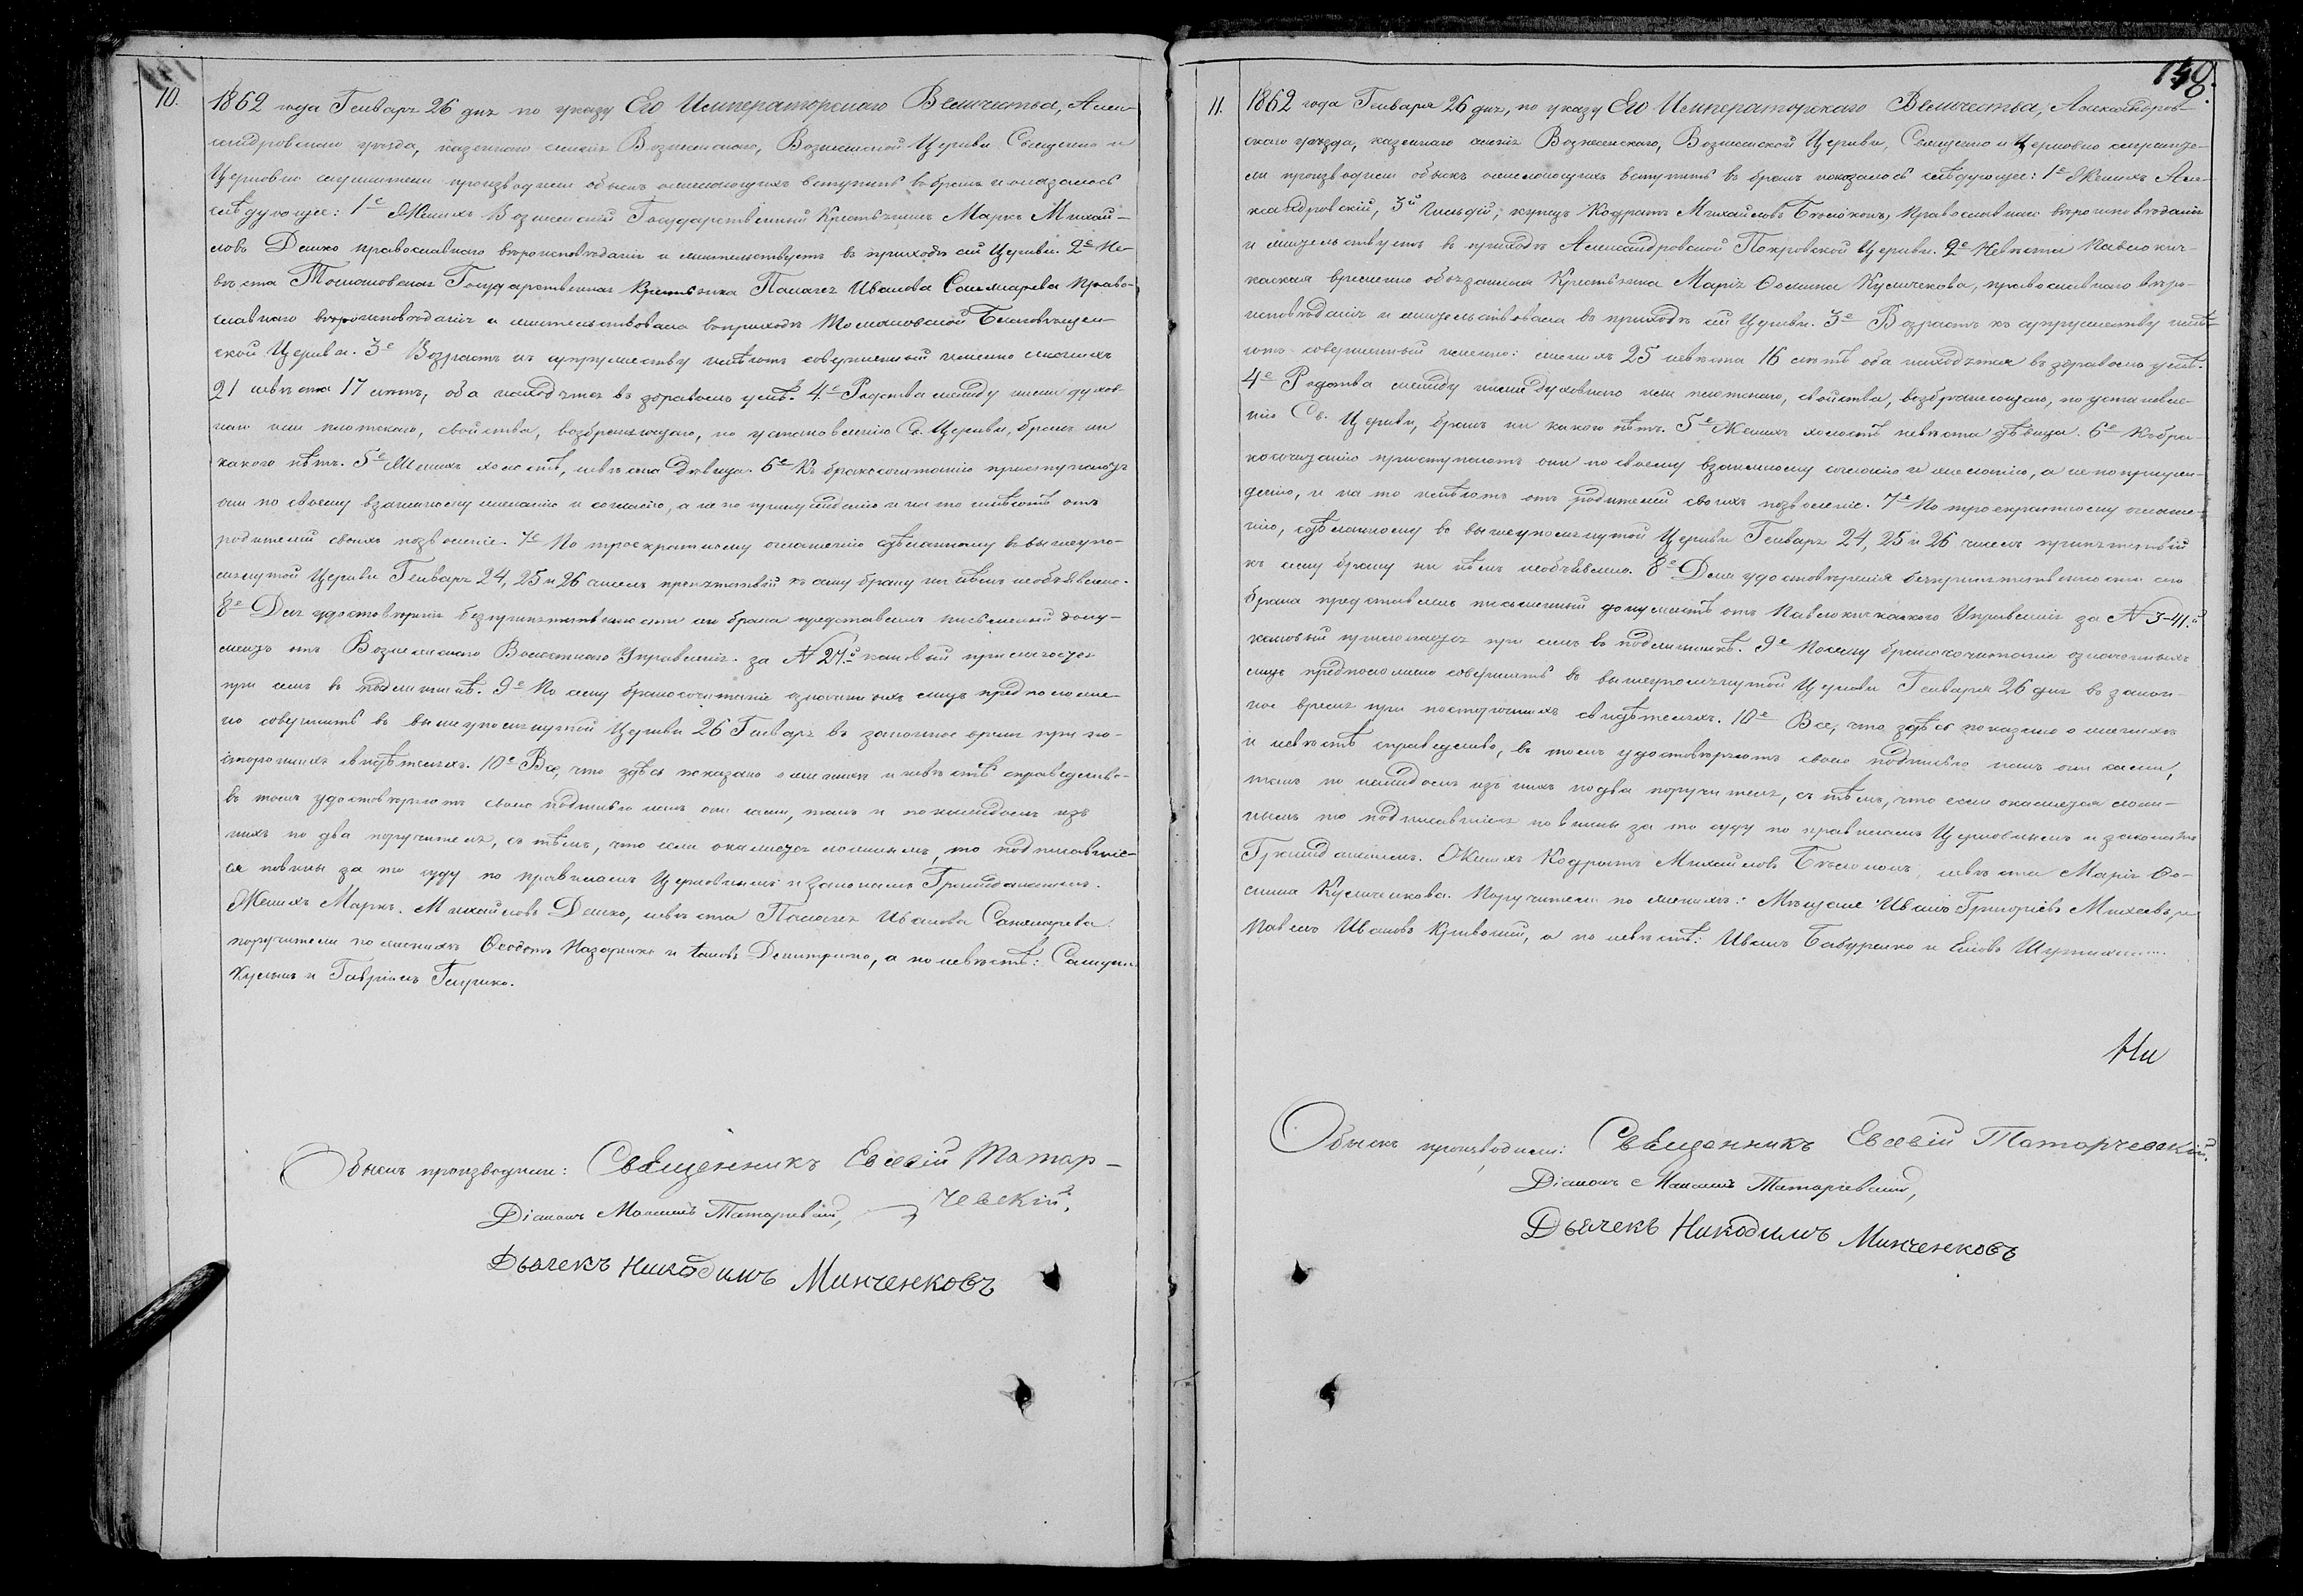 10.
1862 года Генваря 26 дня по указу Его Императорскаго Величества, Алек-
сандровскаго уѣзда, казеннаго селенія Вознесенскаго, Вознесенской Церкви Священно и
Церковно служители производили обыскъ о желающихъ вступить въ бракъ и оказалось
слѣдующее: 1е Женихъ Вознесенскій Государственный Крестьянинъ Марко Михай-
ловъ Дешко православнаго вѣроисповѣданія и жительствуетъ въ приходѣ сей Церкви. 2е Не-
вѣста Государственная Крестьянка Пелагея Иванова православ-
славнаго вѣроисповѣданія и жительствовала въ приходѣ Благовѣщен-
ской Церкви. 3е Возрастъ къ супружеству имѣютъ совершенный именно женихъ
21 невѣста 17 лѣтъ, оба находятся въ здравомъ умѣ. 4е Родства между ними духов-
наго или плотскаго, свойства, возбраняющаго, по установленію Св. Церкви, бракъ ни
какого нѣтъ. 5е Женихъ холостъ, невѣста дѣвица. 6е Къ бракосочитанію приступаютъ
они по своему взаимному желанію и согласію, а не по принужденію и на то имѣютъ отъ
родителей своихъ позволеніе. 7е По троекратному оглашенію сдѣланному въ вышеупо-
мянутой Церкви Генваря 24, 25 и 26 чиселъ препятствій къ сему браку ни кѣмъ необъявлено.
8е Для удостовѣренія безпрепятственности сего брака представленъ письменный доку-
ментъ отъ Вознесенскаго Волостнаго Управленія за N 27.й каковый прилагается
при семъ въ подлинникѣ. 9е По сему бракосочитаніе означенныхъ лицъ предположе-
но совершить въ вышеупомянутой Церкви 26 Генваря въ законное время при по-
стороннихъ свидѣтеляхъ. 10е Все, что здѣсь показано о женихѣ и невѣстѣ справедливо
въ томъ удостовѣряютъ своею подписью какъ они сами, такъ и по каждомъ изъ
нихъ по два поручителя, съ тѣмъ, что если окажется ложнымъ, то подписавшіе-
ся повинны за то суду по правиламъ Церковнымъ и законамъ Гражданскимъ.
Женихъ Марко Михайловъ Дешко, невѣста Пелагея Иванова
поручители по женихѣ Ѳеодотъ Назаренко и Яковъ Дмитренко, а по невѣстѣ:
и Гавріилъ
Обыскъ производили: Священникъ Евсевій Татар-
чевскій,
Діаконъ Татарчевскій,
Дьячекъ Никодимъ Минченковъ
148.
11.
1862 года Генваря 26 дня, по указу Его Императорскаго Величества, Александров-
скаго уѣзда, казеннаго селенія Вознесенскаго, Вознесенской Церкви, Священно и Церковно служите-
ли производили обыскъ о желающихъ вступить въ бракъ и оказалось слѣдующее: 1е Женихъ Алек-
сандровскій, 3й Гильдіи, купецъ Кодратъ Михайловъ православнаго вѣроисповѣданія
и жительствуетъ въ приходѣ Александровской Покровской Церкви. 2е Невѣста Павлокич-
каская временно обязанная Крестьянка Марія Ѳомина православнаго вѣро-
исповѣданія и жительствовала въ приходѣ сей Церкви. 3е Возрастъ къ супружеству имѣ-
ютъ совершенный именно: женихъ 25 невѣста 16 лѣтъ оба находятся въ здравомъ умѣ.
4е Родства между ними духовнаго или плотскаго, свойства, возбраняющаго, по установле-
нію Св. Церкви, бракъ ни какого нѣтъ. 5е Женихъ холостъ невѣста дѣвица. 6е Къ бра-
косочитанію приступаютъ они по своему взаимному согласію и желанію, а не по принуж-
денію, и на то имѣютъ отъ родителей своихъ позволеніе. 7е По троекратному оглаше-
нію, сдѣланному въ вышеупомянутой Церкви Генваря 24, 25 и 26 чиселъ препятствій
къ сему браку ни кѣмъ необъявлено. 8е Для удостовѣренія безпрепятственности сего
брака представленъ письменный документъ отъ Павлокичкаскаго Управленія за N 3-41.й
каковый прилагается при семъ въ подлинникѣ. 9е По сему бракосочитаніе означенныхъ
лицъ предположено совершить въ вышеупомянутой Церкви Генваря 26 дня въ закон-
ное время при постороннихъ свидѣтеляхъ. 10е Все, что здѣсь показано о женихѣ
и невѣстѣ справедливо, въ томъ удостовѣряютъ своею подписью какъ они сами,
такъ по каждомъ изъ нихъ по два поручителя, съ тѣмъ, что если окажется лож-
нымъ то подписавшіеся повинны за то суду по правиламъ Церковнымъ и законамъ
Гражданскимъ. Женихъ Кодратъ Михайловъ невѣста Марія Ѳо-
мина Поручители по женихѣ: Мѣщане Иванъ Григорьевъ Михеевъ, и
Павелъ Ивановъ а по невѣстѣ: Иванъ и
Ни
Обыскъ производили: Священникъ Евсевій Татарчевскій.
Діаконъ Татарчевскій,
Дьячекъ Никодимъ Минченковъ